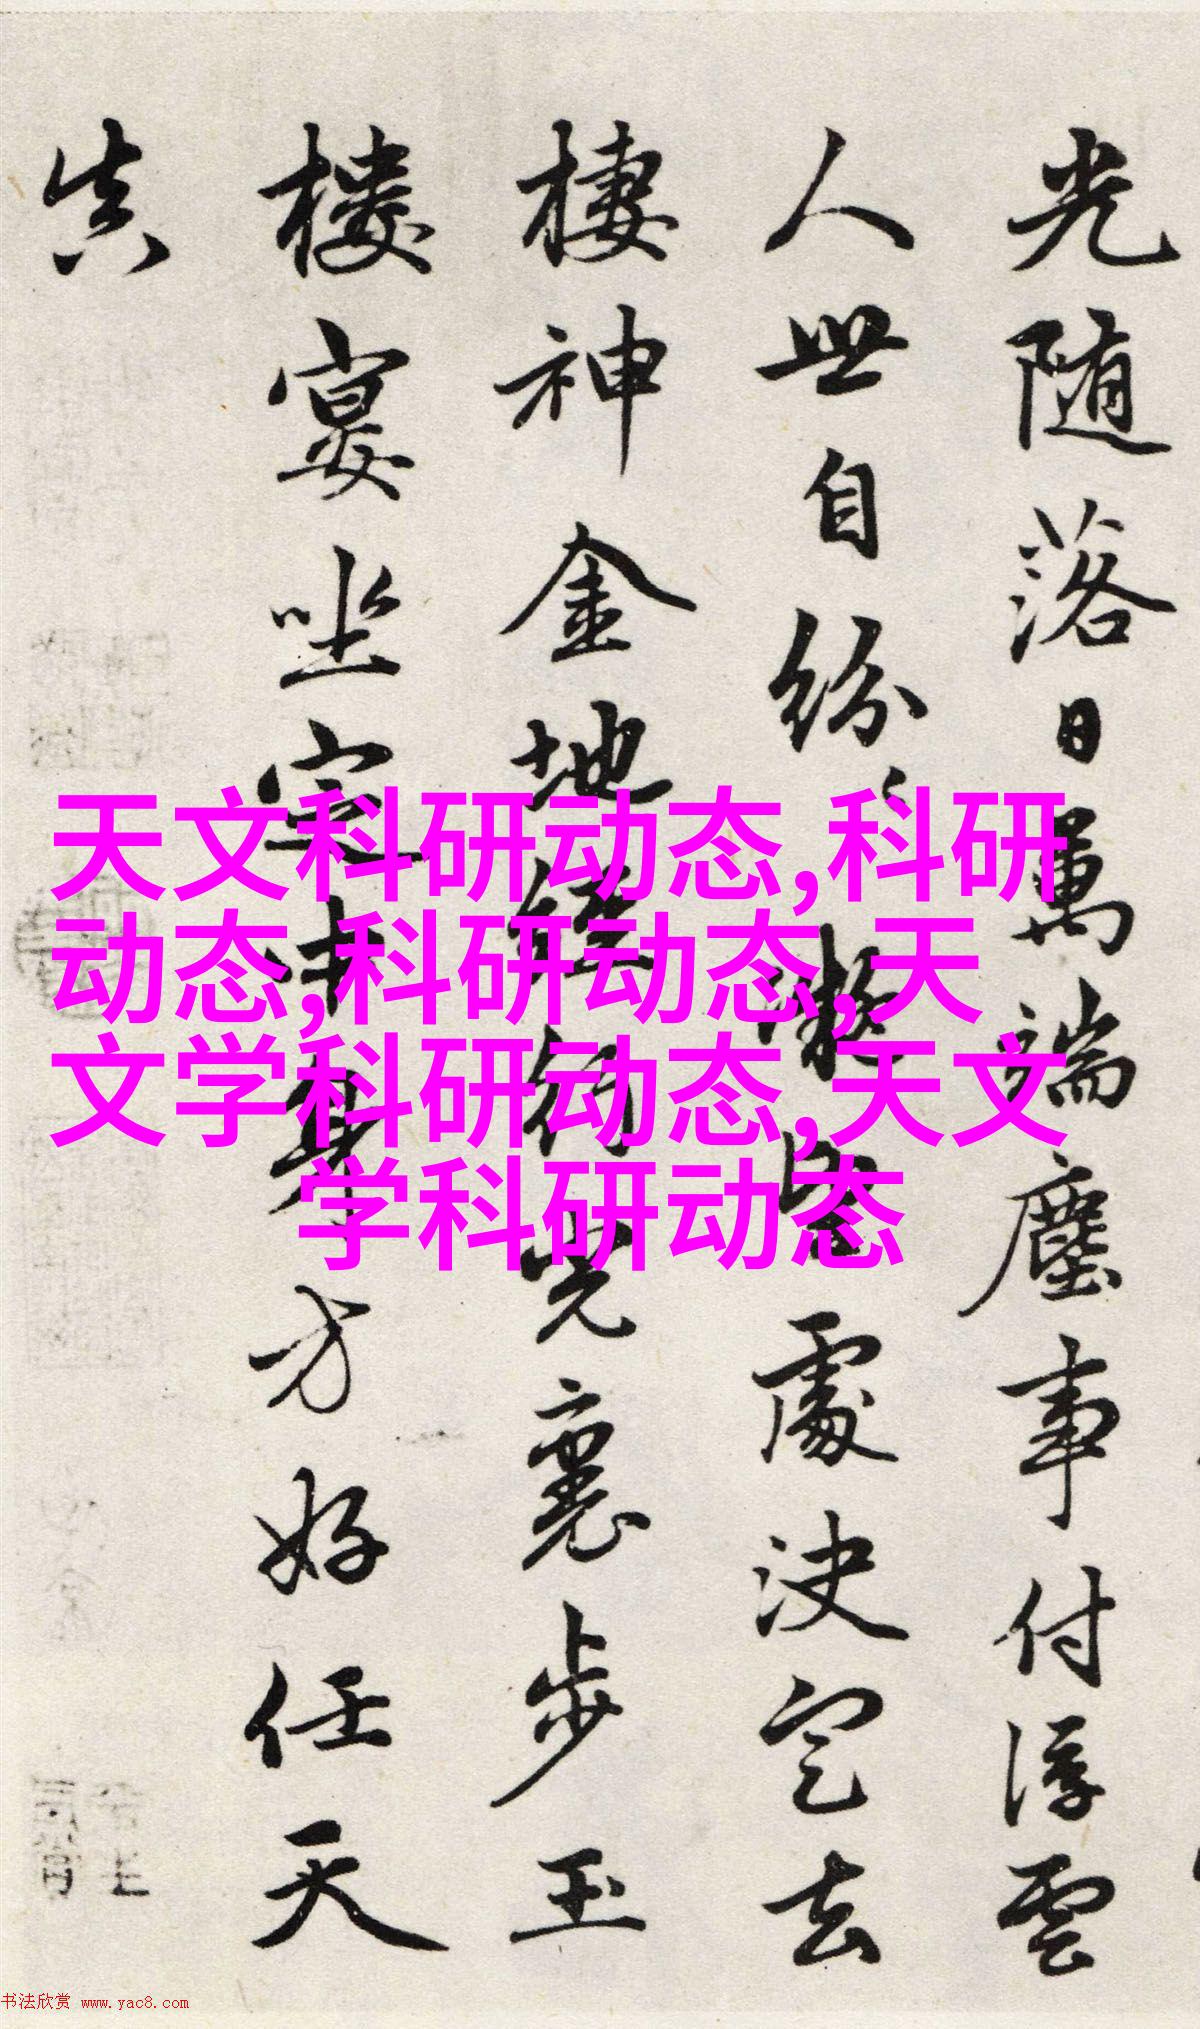 光随落日萬端塵事付浮雲
人世自纷〻凝望處决定去
棲神金地經行光裏步玉
楼宴坐定中身方好任天
真
天文科研动态,科研
动态,科研动态,天
文学科研动态,天文
学科研动态
书法欣赏 www.yac8.com